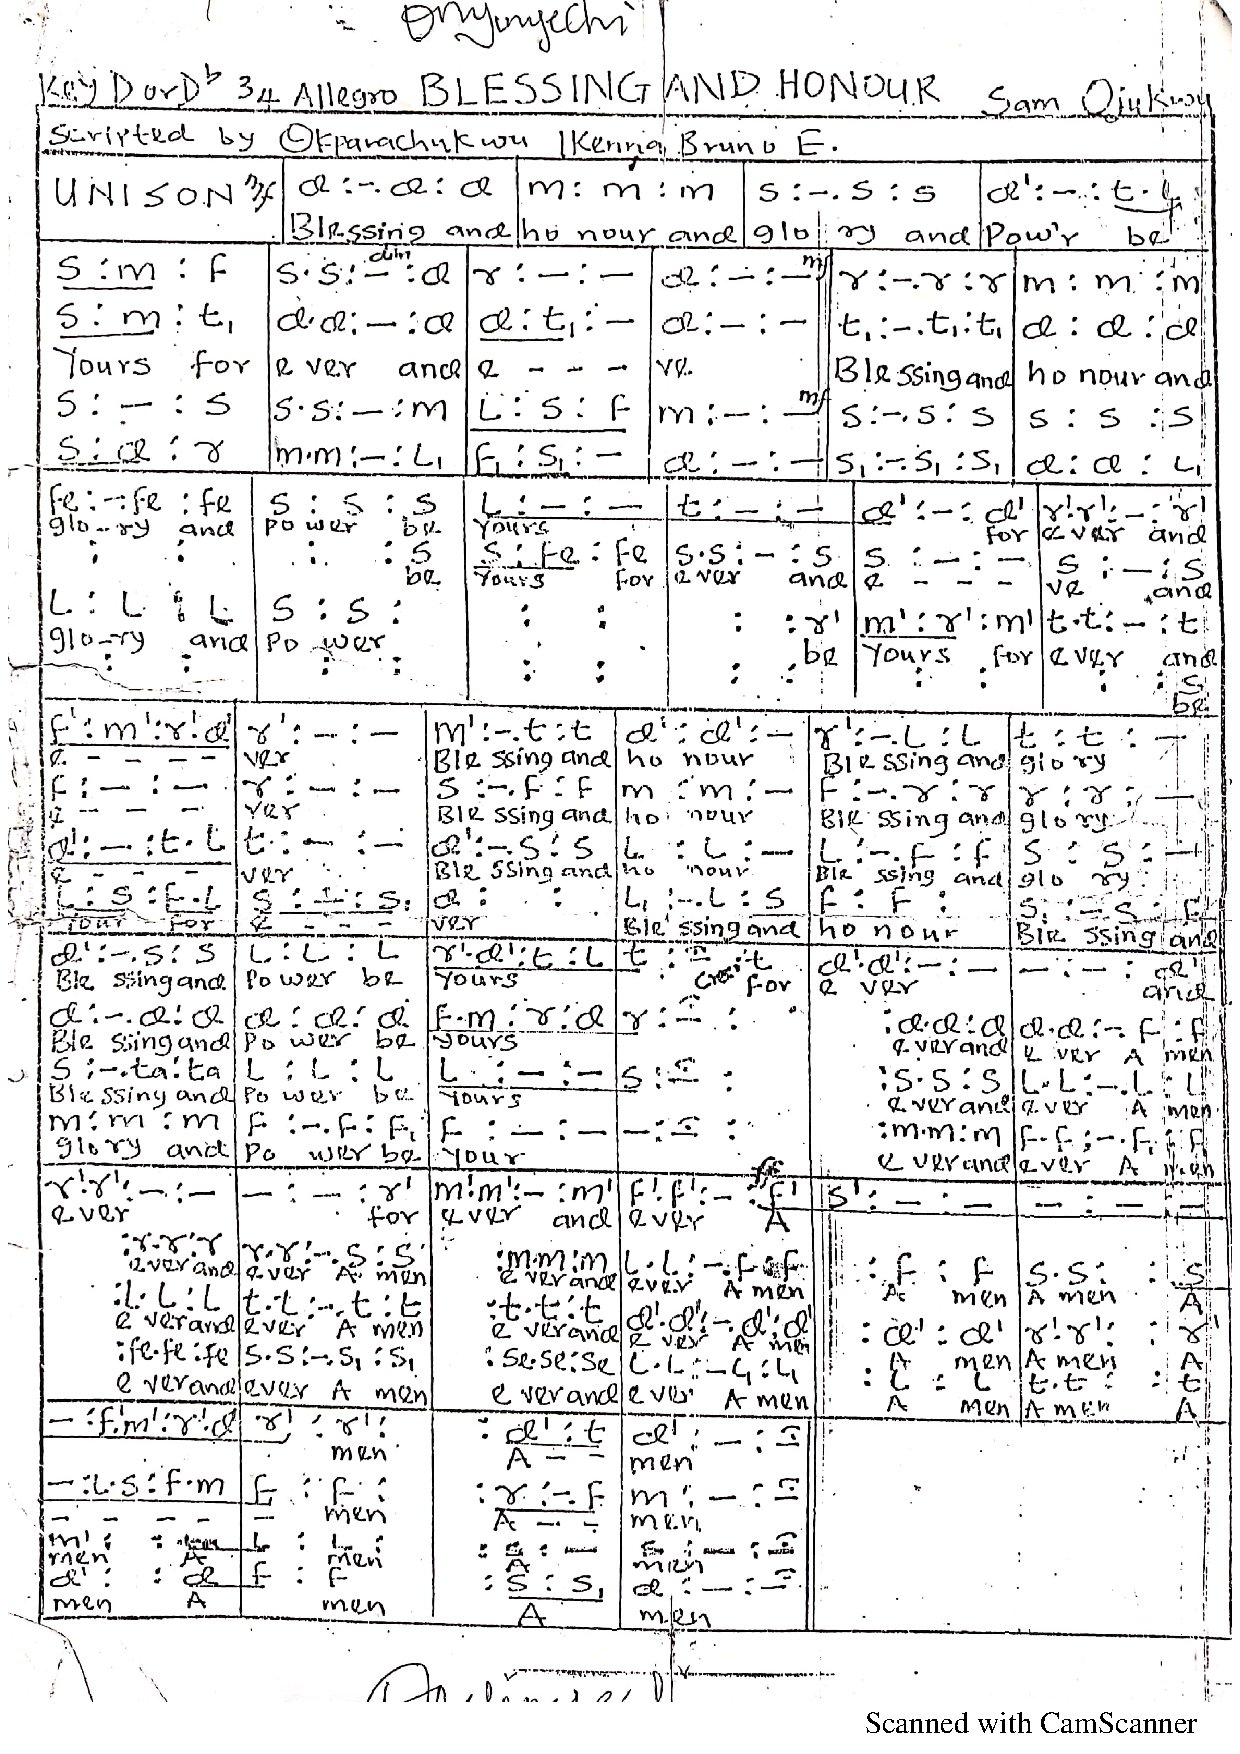 Onyonyechi
Key D or Db 34 Allegro BLESSING AND HONOUR Sam Ojukwu
Scripted by Okparachukwu Ikenna Bruno E.
UNISON mf d :-.d: d m: m : m s :-.s : s d' : - : t.l
Blessing and ho nour and glo ry and Pow'r be
s : m : f s.s: - : d dim r : - : - d : - : - mf r :-.r : r m : m : m
s : m : t, d.d: - : d d : t, : - d : - : - t, :-.t,: t, d : d : d
Yours for e ver and e - - - ve. Blessing and ho nour and
s : - : s s.s: - : m L : s : f m : - : - mf s :-.s : s s : s : s
s : d : r m.m: - : L, f, : s, : - d : - : - s, :-.s, : s, d : d : L,
fe : -.fe : fe s : s : s L : - : - t : - : - d' : - : d' r'.r' : - : r'
glo-ry and Power be Yours for e ver and
: : : : s s : fe : fe s.s : - : s s : - : - s : - : s
be Yours for ever and e - - - ve and
L : L : L s : s : : : : : r' m' : r' : m' t.t : - : t
glo-ry and Po wer be Yours for ever and
: : : : : : : : : : : : s
be
f' : m' : r'.d' r' : - : - m' :-.t : t d' : d' : - r' :-.L : L t : t : -
e - - - - ver Ble ssing and ho nour Blessing and glory
f : - : - r : - : - s :-.f : f m : m : - f :-.r : r r : r : -
e - - - - ver Ble ssing and ho nour Ble ssing and glory
d' : - : t.L t : - : - d' :-.s : s L : L : - L :-.f : f s : s : -
e - - - - ver Ble ssing and ho nour Ble ssing and glo ry
L : s : f.L s : - : s, d : : L, :-.L : s f : f : s, : -.s : f
Your for e - - - ver Ble ssing and ho nour Ble ssing and
d' :-.s : s L : L : L r'.d' : t : L t : - : t cres d'.d' : - : - - : - : d'
Ble ssing and Power be Yours for e ver and
d :-.d : d d : d : d f.m : r : d r : - : : d.d : d d.d :-.f : f
Ble ssing and Po wer be Yours e ver and e ver A men
s :-.ta : ta L : L : L L : - : - s : - : : s.s : s L.L :-.L : L
Blessing and Po wer be Yours e ver and e ver A men
m : m : m f :-.f : f, f : - : - - : - : : m.m : m f.f :-.f, : f
glory and Po wer be Your e ver and e ver A men
r'.r' : - : - - : - : r' m'.m' : - : m' f'.f' : - : f' ff s' : - : - - : - : -
e ver for e ver and ever A
: r.r : r r.r :-.s : s : m.m : m L.L :-.f : f : f : f s.s : : s
e ver and ever A men e ver and ever A men A men A men A
: L.L : L t.t :-.t : t : t.t : t d'.d' :-.d' : d' : d' : d' r'.r' : : r'
e ver and ever A men e ver and e ver A men A men A men A
: fe.fe : fe s.s :-.s, : s, : se.se : se L.L :-.L, : L, : L : L t.t : : t
e ver and ever A men e ver and e ver A men A men A men A
- : f'.m' : r'.d' r' : r' : : d' : t d' : - : -
men A - - men
- : L.s : f.m f : f : : r :-.f m : - : -
- - - - - - men A - - men
m' : : L : L : : s : - s : - : -
men A men A men
d' : : d f : f : s : s, d : - : -
men A men A men
Scanned with CamScanner